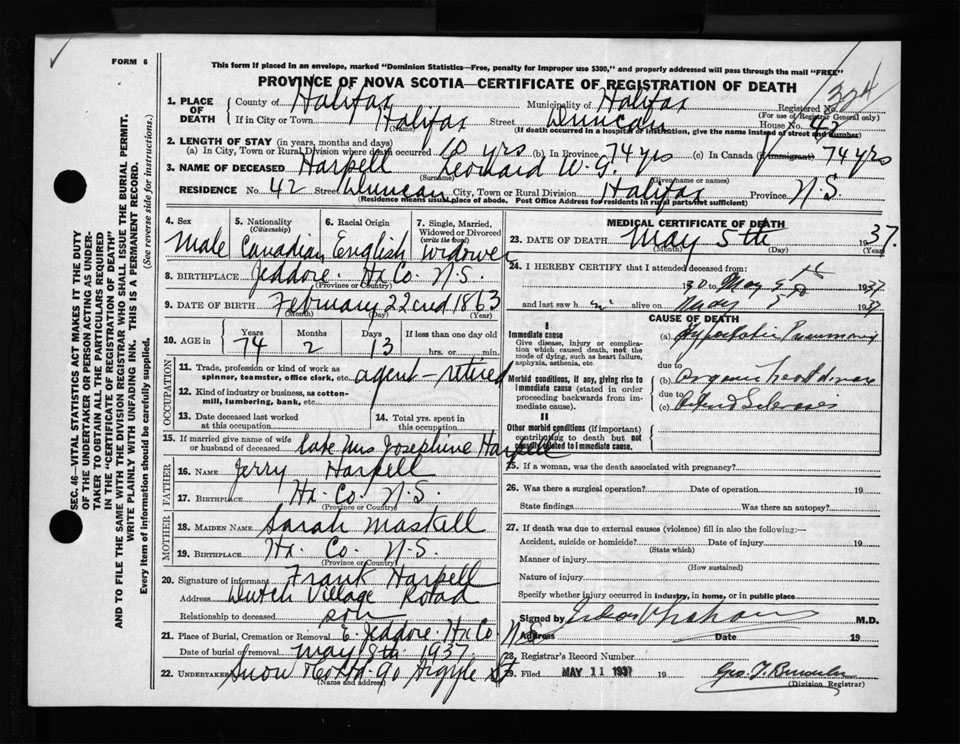 FORM 6
This form if placed in an envelope, marked "Dominion Statistics—Free, penalty for improper use $300," and properly addressed will pass through the mail "FREE"
PROVINCE OF NOVA SCOTIA—CERTIFICATE OF REGISTRATION OF DEATH
1. PLACE OF DEATH
County of Halifax Municipality of Halifax Registered No. 324
(For use of Registrar General only)
If in City or Town Halifax (Name) Street Duncan House No. 42
(If death occurred in a hospital or institution, give the name instead of street and number)
2. LENGTH OF STAY (in years, months and days)
(a) In City, Town or Rural Division where death occurred 10 yrs (b) In Province 74 yrs (c) In Canada (if immigrant) 74 yrs
3. NAME OF DECEASED Harpell Leonard W. G.
(Surname) (Given name or names)
RESIDENCE No. 42 Street Duncan City, Town or Rural Division Halifax Province N.S
(Residence means usual place of abode. Post Office Address for residents in rural parts not sufficient)
4. Sex Male
5. Nationality (Citizenship) Canadian
6. Racial Origin English
7. Single, Married, Widowed or Divorced (write the word) Widower
8. BIRTHPLACE Jeddore. Hx Co N.S.
(Province or Country)
9. DATE OF BIRTH February 22nd 1863
(Month) (Day) (Year)
10. AGE in Years 74 Months 2 Days 13 If less than one day old hrs. or min.
OCCUPATION
11. Trade, profession or kind of work as spinner, teamster, office clerk, etc. agent - retired
12. Kind of industry or business, as cotton-mill, lumbering, bank, etc.
13. Date deceased last worked at this occupation
14. Total yrs. spent in this occupation
15. If married give name of wife or husband of deceased late Mrs Josephine Harpell
FATHER
16. NAME Jerry Harpell
17. BIRTHPLACE Hx. Co. N.S.
(Province or Country)
MOTHER
18. MAIDEN NAME Sarah Maskell
19. BIRTHPLACE Hx. Co. N.S.
(Province or Country)
20. Signature of informant Frank Harpell
Address Dutch Village Road
Relationship to deceased son
21. Place of Burial, Cremation or Removal E. Jeddore. Hx Co N.S
Date of burial or removal May 8th 1937
22. UNDERTAKER Snow & Co Ltd 90 Argyle St
(Name and address)
MEDICAL CERTIFICATE OF DEATH
23. DATE OF DEATH May 5th 1937.
(Month) (Day) (Year)
24. I HEREBY CERTIFY that I attended deceased from:
to May 5th 1937
and last saw h alive on May 5 1937
CAUSE OF DEATH
I
Immediate cause
Give disease, injury or complication which caused death, not the mode of dying, such as heart failure, asphyxia, asthenia, etc.
(a) Hypostatic Pneumonia
due to
Morbid conditions, if any, giving rise to immediate cause (stated in order proceeding backwards from immediate cause).
(b) Organic heart disease
due to
(c)
II
Other morbid conditions (if important) contributing to death but not causally related to immediate cause.
25. If a woman, was the death associated with pregnancy?
26. Was there a surgical operation? Date of operation 19
State findings Was there an autopsy?
27. If death was due to external causes (violence) fill in also the following:—
Accident, suicide or homicide? Date of injury 19
(State which)
Manner of injury
(How sustained)
Nature of injury
Specify whether injury occurred in industry, in home, or in public place
Signed by M.D.
Address Date 19
28. Registrar's Record Number
29. Filed MAY 11 1937 19
(Division Registrar)
SEC. 46—VITAL STATISTICS ACT MAKES IT THE DUTY
OF THE UNDERTAKER OR PERSON ACTING AS UNDER-
TAKER TO OBTAIN ALL THE PARTICULARS REQUIRED
IN THE "CERTIFICATE OF REGISTRATION OF DEATH"
AND TO FILE THE SAME WITH THE DIVISION REGISTRAR WHO SHALL ISSUE THE BURIAL PERMIT.
WRITE PLAINLY WITH UNFADING INK. THIS IS A PERMANENT RECORD.
Every item of information should be carefully supplied. (See reverse side for instructions.)